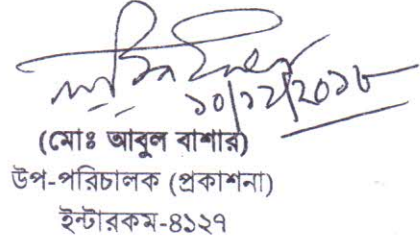 ১০/১২/২০১৮
(মোঃ আবুল বাশার)
উপ-পরিচালক (প্রকাশনা)
ইন্টারকম-৪১২৭